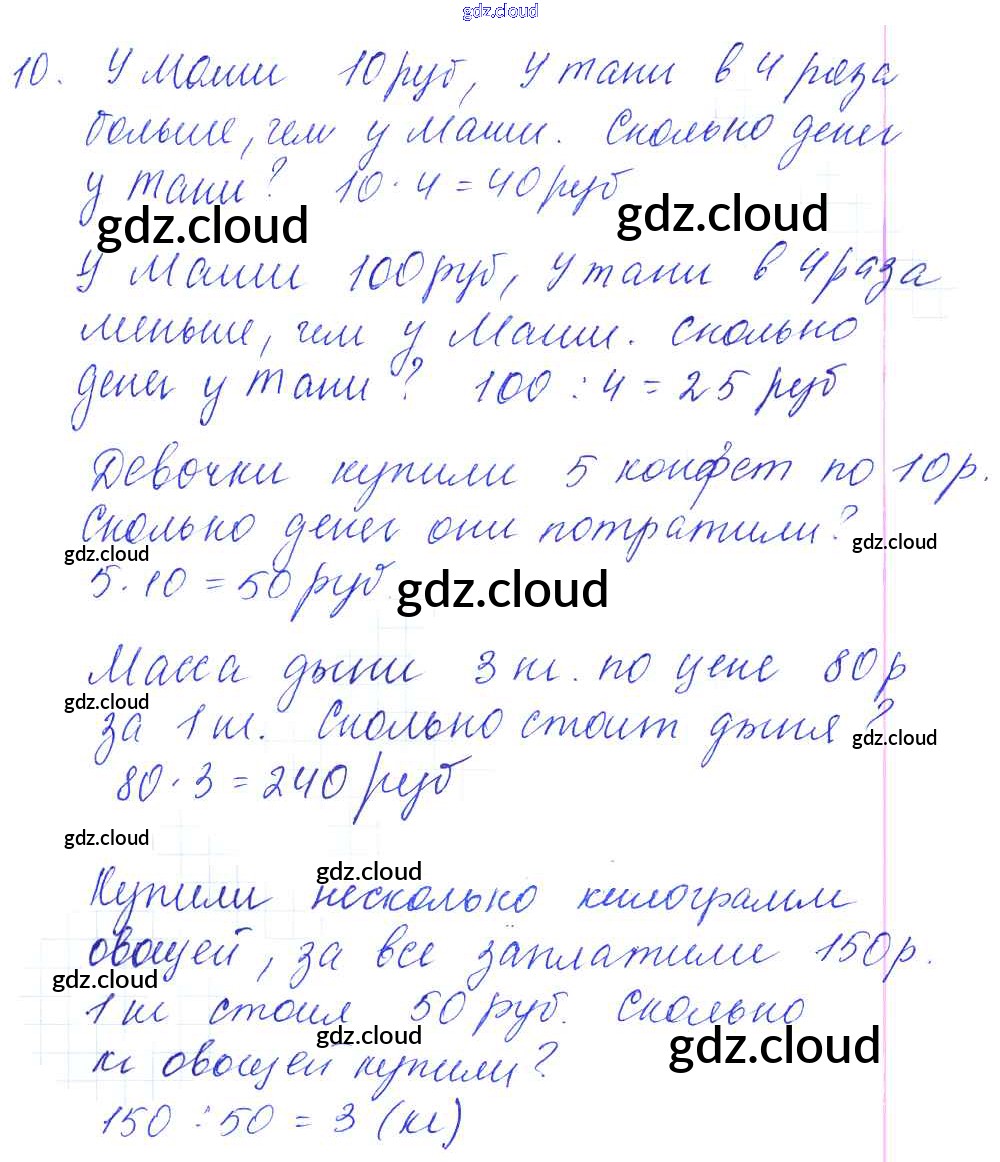 gdz.cloud
10. У Маши 10 руб, У Тани в 4 раза
больше, чем у Маши. Сколько денег
у Тани? 10 · 4 = 40 руб
gdz.cloud gdz.cloud
У Маши 100 руб, У Тани в 4 раза
меньше, чем у Маши. Сколько
денег у Тани? 100 : 4 = 25 руб
Девочки купили 5 конфет по 10 р.
Сколько денег они потратили?
gdz.cloud gdz.cloud
5 · 10 = 50 руб.
gdz.cloud
Масса дыни 3 кг. по цене 80 р
gdz.cloud
за 1 кг. Сколько стоит дыня?
gdz.cloud
80 · 3 = 240 руб
gdz.cloud
gdz.cloud
Купили несколько килограмм
овощей, за все заплатили 150 р.
gdz.cloud
1 кг стоил 50 руб. Сколько
gdz.cloud gdz.cloud
кг овощей купили?
150 : 50 = 3 (кг)